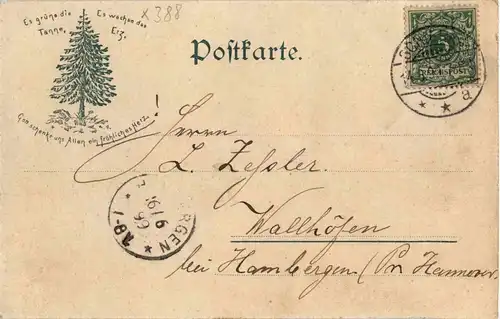 Es grüne die Tanne,
Es wachse das Erz,
Gott schenke uns Allen ein fröhliches Herz!
x 388
Postkarte.
REICHSPOST
Herrn
L. Zessler.
Wallhöfen
bei Hambergen (Pr Hannover
16/6
7-8 N